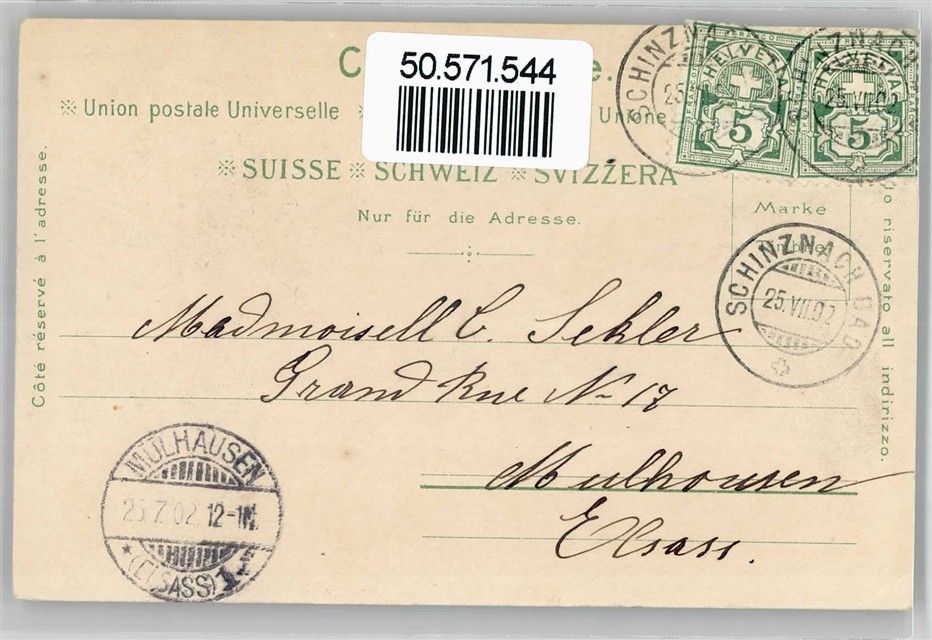 50.571.544
C e.
※ Union postale Universelle ※ Unione
※ SUISSE ※ SCHWEIZ ※ SVIZZERA
Nur für die Adresse.
Côté réservé à l'adresse.
riservato all indirizzo.
Marke
HELVETIA
5
HELVETIA
5
SCHINZNACH
25.VII.02
SCHINZNACH BAD
25.VII.02
Madmoisell C. Sekler
Grand Rue No 17
Mulhousen
Elsass.
MÜLHAUSEN
25.7.02. 12-1N.
★(ELSASS)